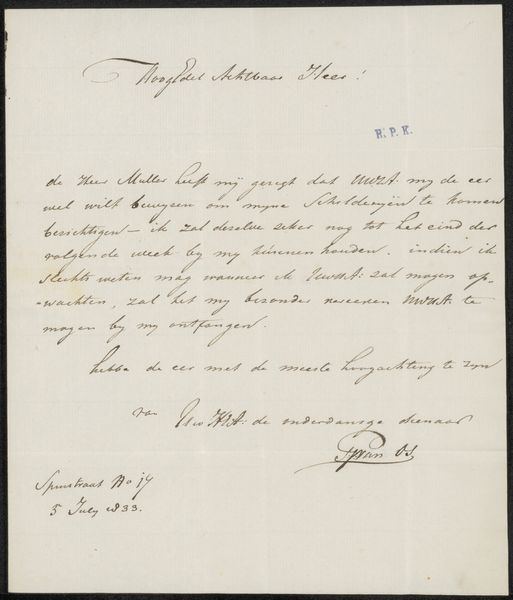 HoogEdel Achtbaar Heer!
R. P. K.
de Heer Muller heeft mij gezegt dat UWEA: my de eer
wel wilt bewyzen om myne Schilderyën te komen
bezichtigen – ik zal dezelve zeker nog tot het eind der
volgende week by my kunnen houden. indien ik
slechts weten mag wanneer ik UWEA: zal mogen op-
-wachten, zal het my byzonder vereeren UWEA: te
mogen by my ontfangen.
hebbe de eer met de meeste hoogachting te zyn
van UwEA: de onderdanige dienaar
van Os
Spuistraat No 17
5 July 1833.